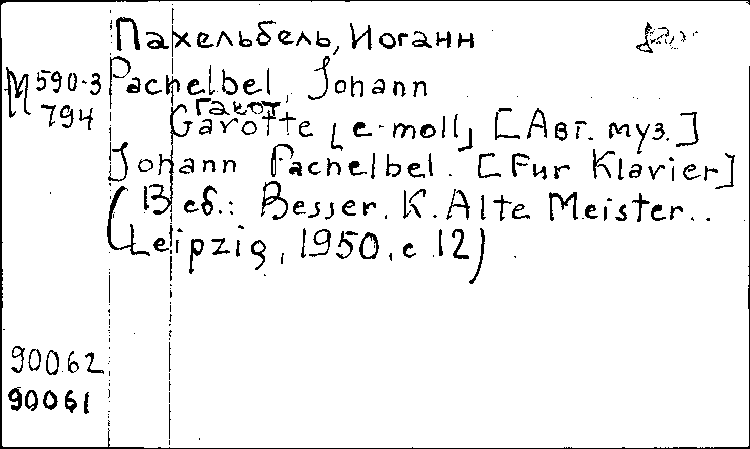 Пахельбель, Иоганн
М 590-3
794
Pachelbel, Johann
Гавот
Garotte [e-moll] [Авт. муз.]
Johann Pachelbel. [Fur Klavier]
(В сб.: Besser. K. Alte Meister..
Leipzig, 1950, с 12)
90062
90061